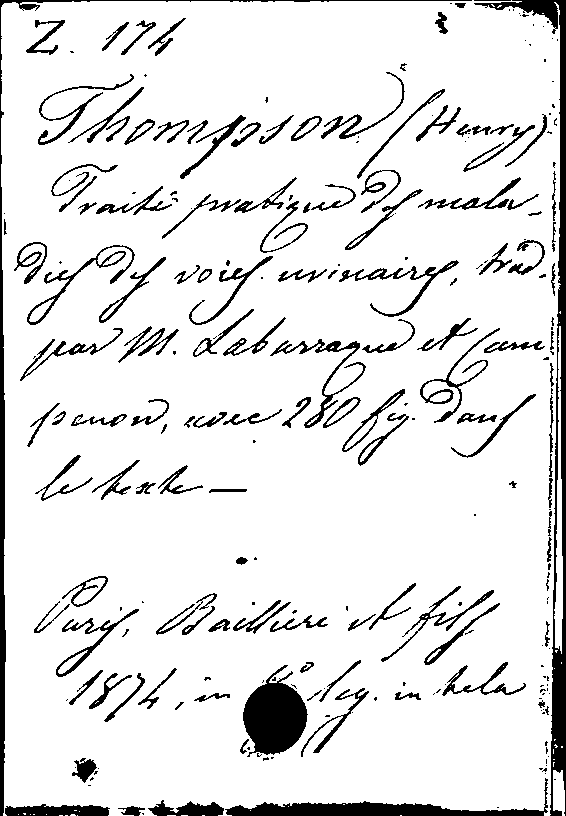 Z. 174
Thompson (Henry)
Traité pratique des mala-
dies des voies urinaires, trad.
par M. Labarraque et Cam-
penon, avec 280 fig. dans
le texte —
Paris, Baillière et fils
1874, in leg. in tela